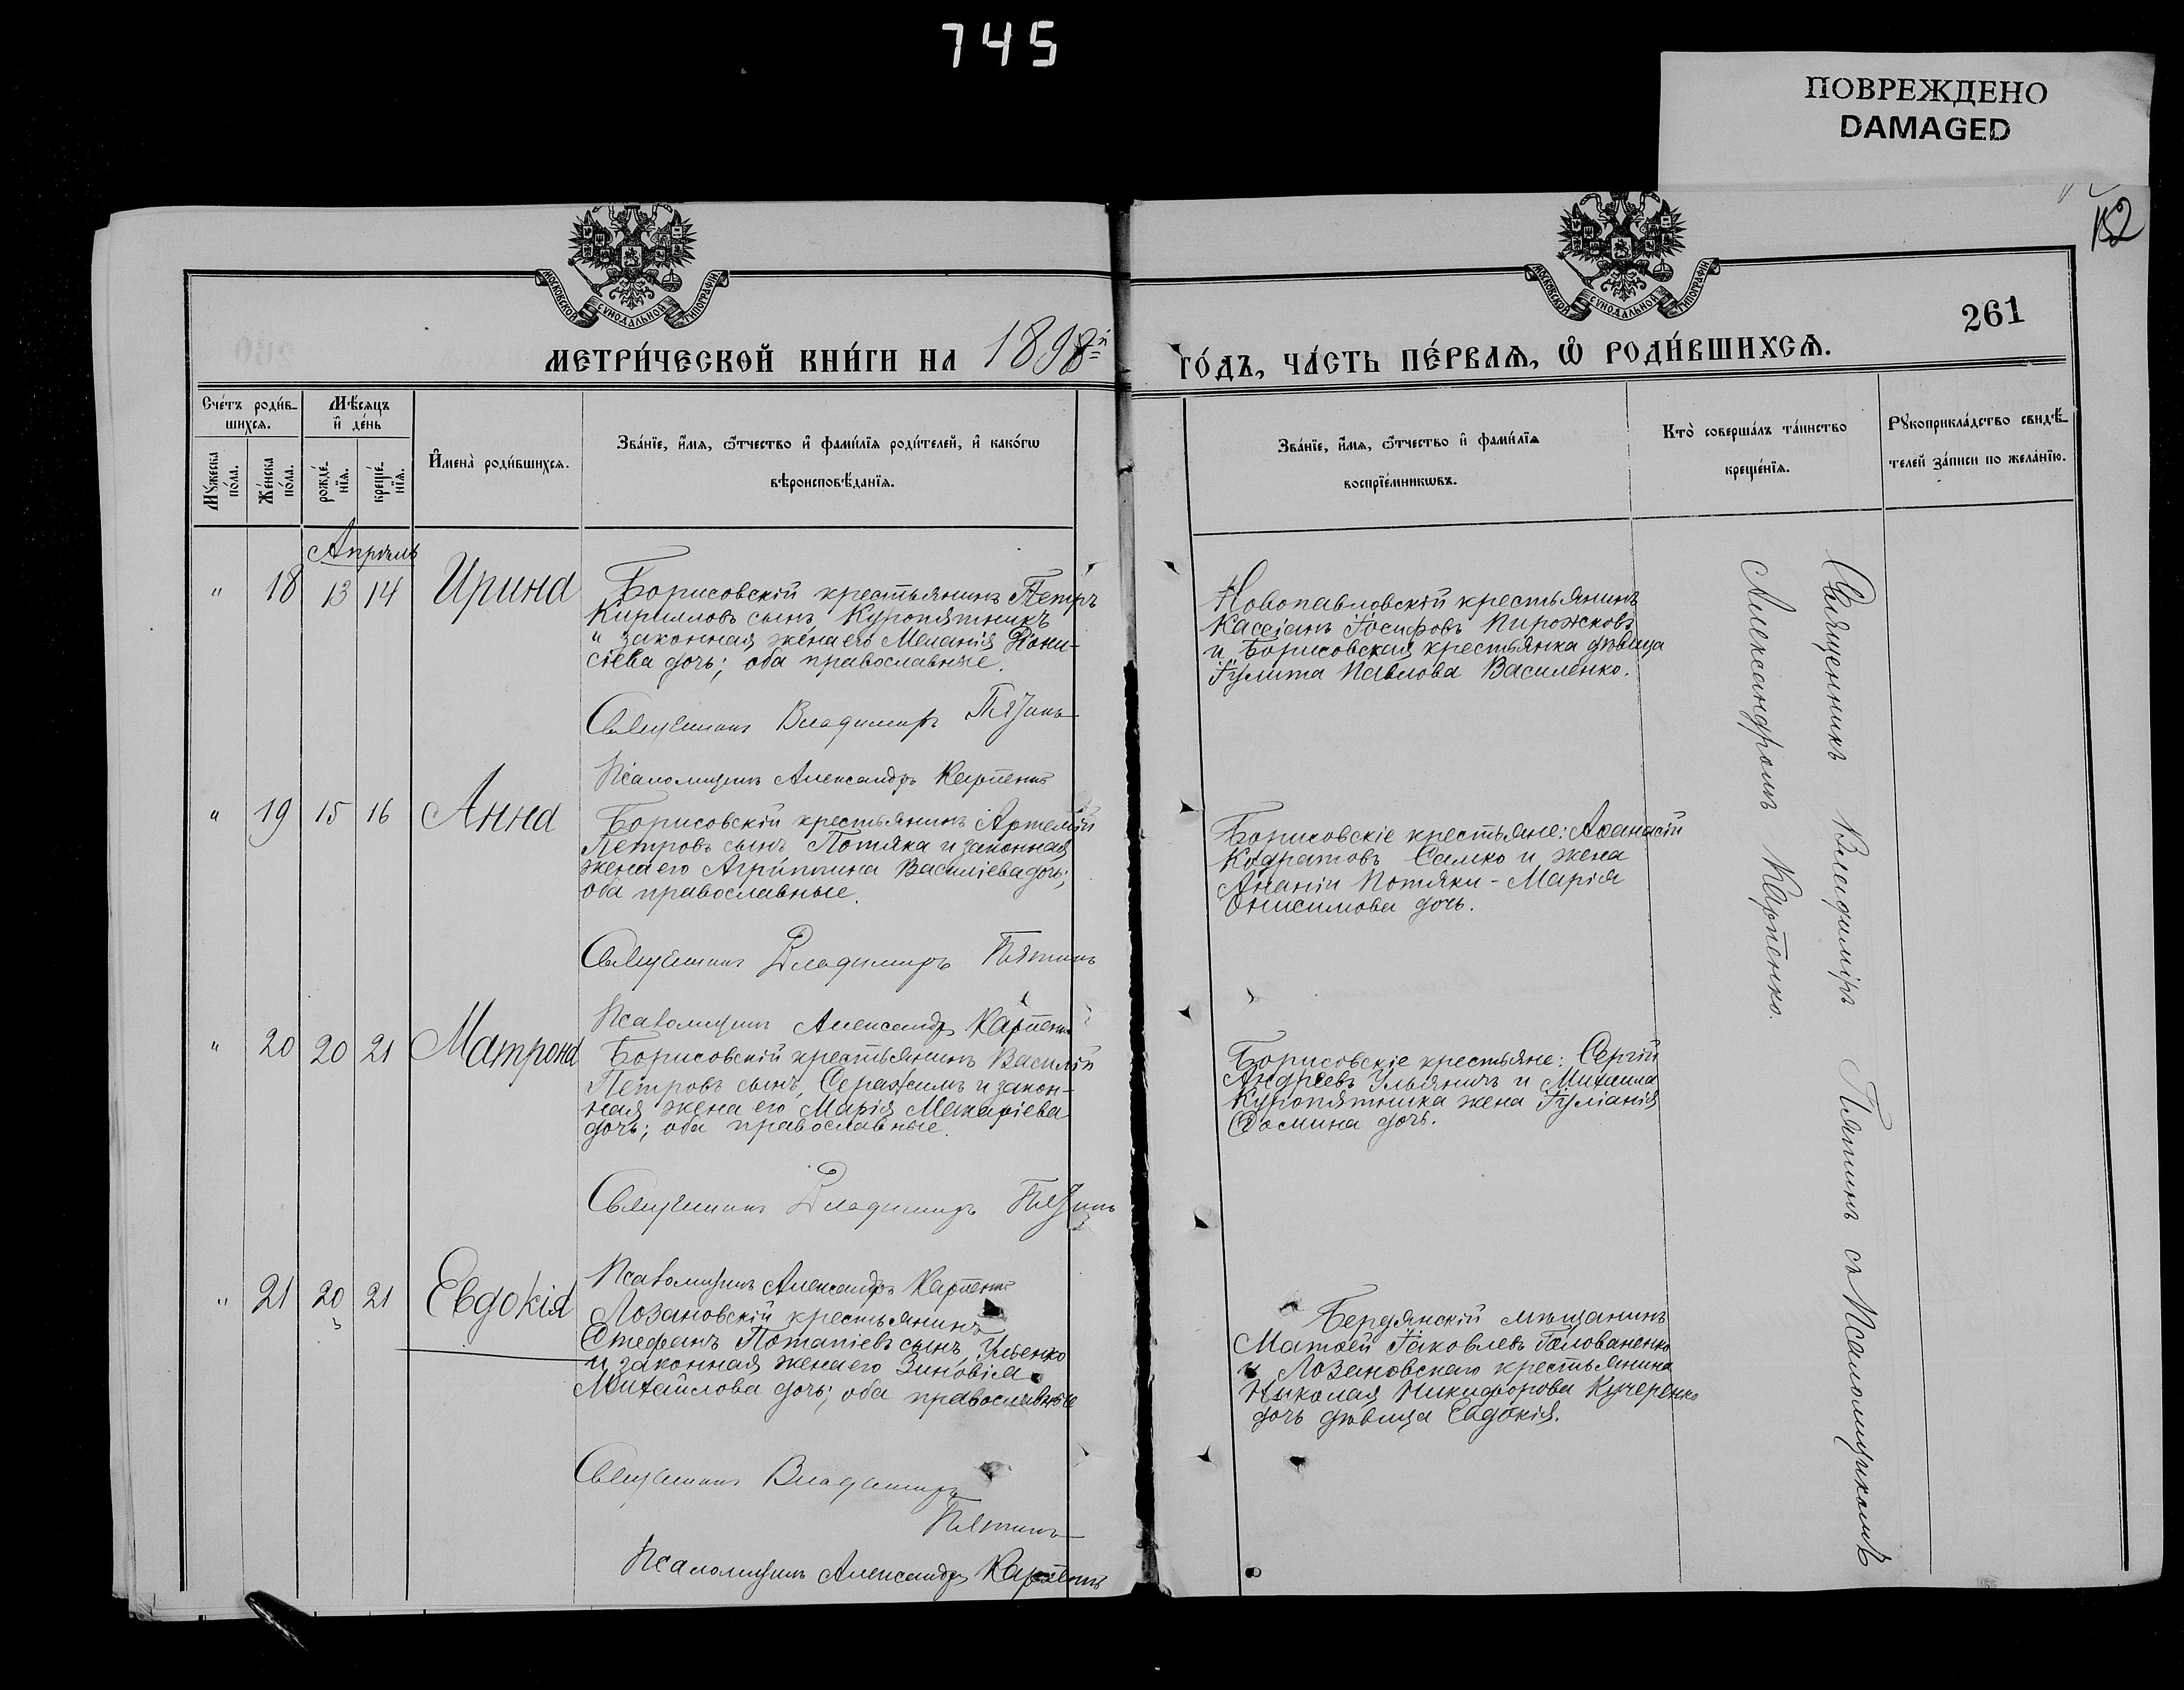 745
ПОВРЕЖДЕНО
DAMAGED
152
261
МОСКОВСКОЙ СѴНОДАЛЬНОЙ ТИПОГРАФІИ
МОСКОВСКОЙ СѴНОДАЛЬНОЙ ТИПОГРАФІИ
МЕТРИ́ЧЕСКОЙ КНИ́ГИ НА 1898й
ГО́ДЪ, ЧА́СТЬ ПЕ́РВАѦ, Ѽ РОДИ́ВШИХСѦ.
Сче́тъ роди́в-
шихсѧ.
Мѣ́сяцъ
и҆ де́нь
Мꙋ́жеска
по́ла.
Же́нска
по́ла.
рожде́-
нїѧ.
креще́-
нїѧ.
И҆мена̀ роди́вшихсѧ.
Зва́нїе, и҆́мѧ, ѻ҆́тчество и҆ фами́лїѧ роди́телей, и҆ како́гѡ
вѣроисповѣ́данїѧ.
Зва́нїе, и҆́мѧ, ѻ҆́тчество и҆ фами́лїѧ
воспрїе́мникѡвъ.
Кто̀ соверша́лъ та́инство
креще́нїѧ.
Рꙋкоприкла́дство свидѣ́-
телей за́писи по жела́нїю.
Апрѣль
" 18 13 14 Ирина
Борисовскій крестьянинъ Петръ
Кирилловъ сынъ Куропятникъ
и законная жена его Меланія Діони-
сіева дочь; оба православные.
Священникъ Владимиръ Пятинъ
Псаломщикъ Александръ Карпенко
Новопавловскій крестьянинъ
Кассіанъ Іосифовъ Пирожковъ
и Борисовская крестьянка дѣвица
Іулита Павлова Василенко.
" 19 15 16 Анна
Борисовскій крестьянинъ Артемій
Петровъ сынъ Потяка и законная
жена его Агриппина Василіева дочь;
оба православные.
Священникъ Владимиръ Пятинъ
Псаломщикъ Александръ Карпенко
Борисовскіе крестьяне: Аѳанасій
Кодратовъ Самко и жена
Ананіи Потяки - Марія
Онисимова дочь.
" 20 20 21 Матрона
Борисовскій крестьянинъ Василій
Петровъ сынъ, Серажимъ и закон-
ная жена его Марія Макаріева
дочь; оба православные.
Священникъ Владимиръ Пятинъ
Псаломщикъ Александръ Карпенко
Борисовскіе крестьяне: Сергій
Андреевъ Ульяничъ и Михаила
Куропятника жена Іуліанія
Ѳомина дочь.
" 21 20 21 Евдокія
Лозановскій крестьянинъ
Стефанъ Потапіевъ сынъ Ульенко
и законная жена его Зиновія
Михайлова дочь; оба православные
Священникъ Владимиръ
Пятинъ
Псаломщикъ Александръ Карпенко
Бердянскій мѣщанинъ
Матѳей Іаковлевъ Голованенко
и Лозановскаго крестьянина
Николая Никифорова Кучеренко
дочь дѣвица Евдокія.
Священникъ Владиміръ Пятинъ съ Псаломщикомъ
Александромъ Карпенко.